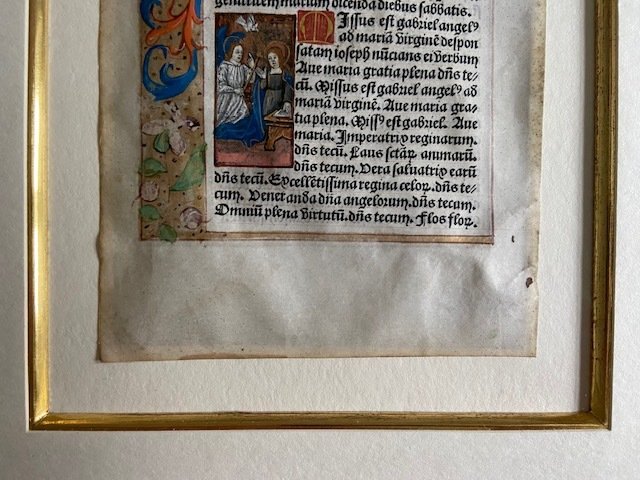 genitricem mariam dicenda diebus sabbatis.
Missus est gabriel angelꝰ
ad mariā virginē despon
satam ioseph nūcians ei verbum
Aue maria gratia plena dn̄s te-
cū. Missus est gabriel angelꝰ ad
mariā virginē. Aue maria gra-
tia plena. Missꝰ est gabriel. Aue
maria. Imperatrix reginarum.
dn̄s tecū. Laus sctāꝝ animarū.
dn̄s tecum. Vera saluatrix earū
dn̄s tecū. Excellētissima regina celoꝝ. dn̄s te-
cum. Veneranda dn̄a angelorum. dn̄s tecum.
Omniū plena virtutū. dn̄s tecum. Flos floꝝ.